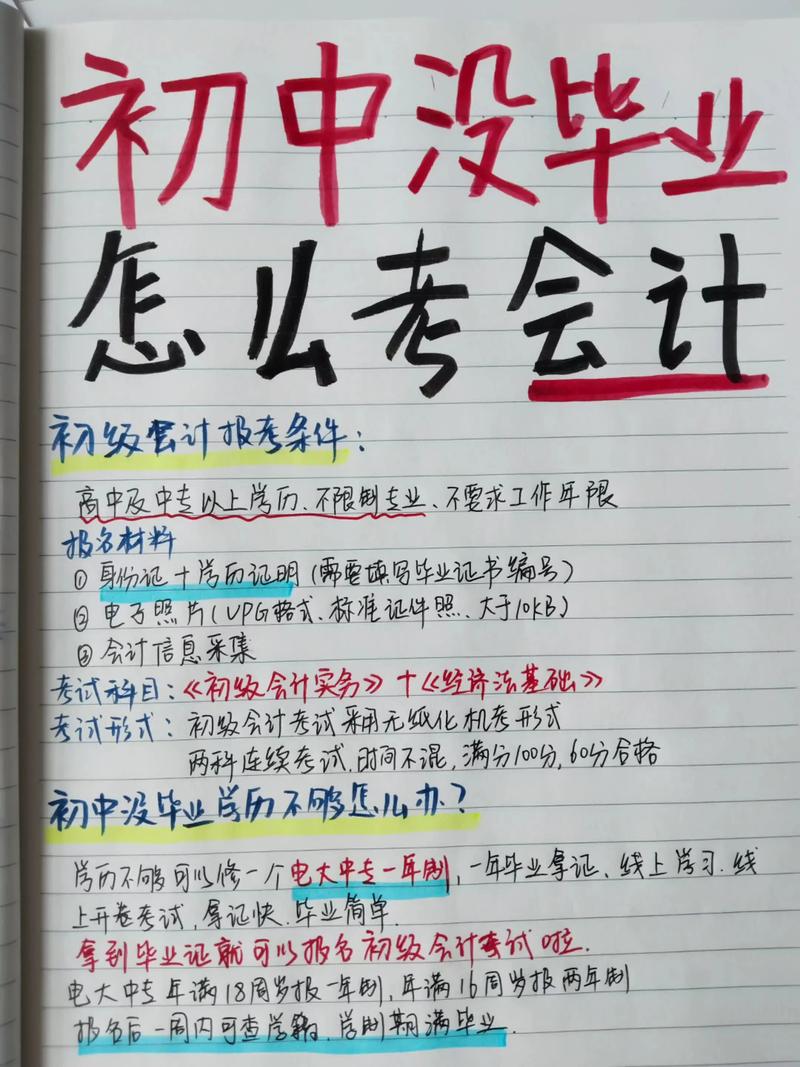 初中没毕业
怎么考会计
初级会计报考条件：
高中及中专以上学历、不限制专业、不要求工作年限
报名材料
①身份证+学历证明(需要填写毕业证书编号)
②电子照片(JPG格式、标准证件照、大于10KB)
③会计信息采集
考试科目：《初级会计实务》+《经济法基础》
考试形式：初级会计考试采用无纸化机考形式
两科连续考试,时间不混,满分100分,60分合格
初中没毕业学历不够怎么办?
学历不够可以修一个电大中专一年制,一年毕业拿证、线上学习.线
上开卷考试,拿证快.毕业简单.
拿到毕业证就可以报名初级会计考试啦.
电大中专年满18周岁报一年制,年满16周岁报两年制
报名后一周内可查学籍,学制期满毕业.